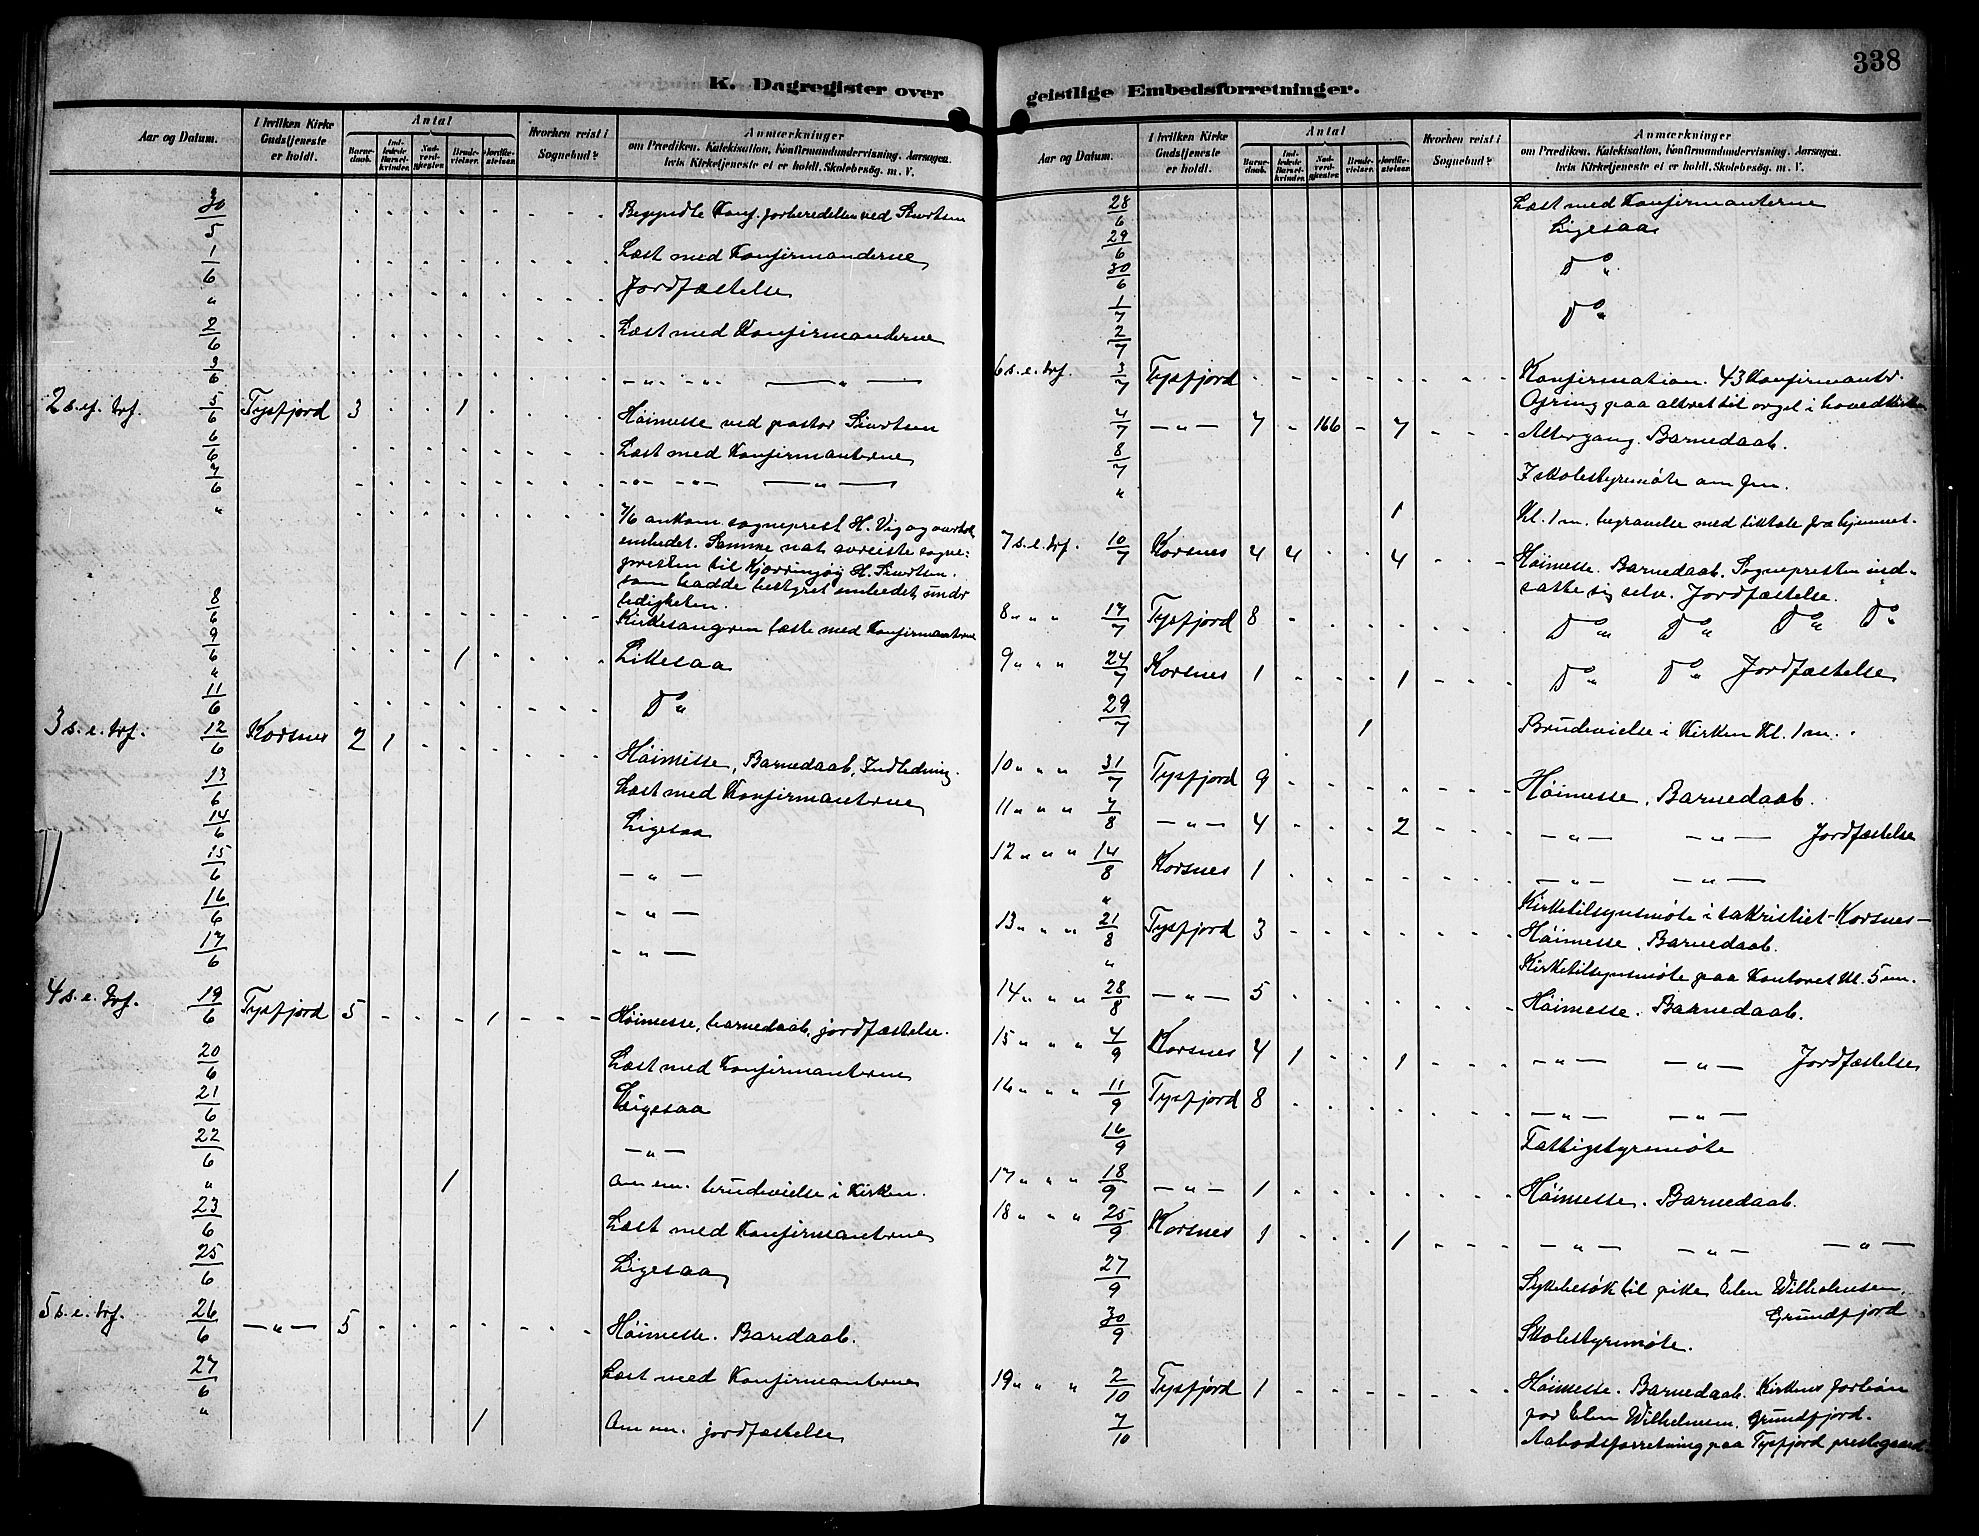 338
K. Dagregister over
geistlige Embedsforretninger.
Aar og Datum.
I hvilken Kirke Gudstjeneste er holdt.
Antal
Barne-daab.
Ind-ledede Barsel-kvinder.
Nad-verd-gjæster.
Brude-vielser.
Jordfæ-stelser.
Hvorhen reist i Sognebud?
Anmærkninger
om Prædiken, Katekisation, Konfirmandundervisning, Aarsagen, hvis Kirketjeneste ei er holdt, Skolebesøg m. V.
30/5 Begyndte Konf. forberedelsen ved
1/6 Læst med Konfirmanderne
" Jordfæstelse
2/6 Læst med Konfirmanderne
3/6 — " — " — " —
2 s. ef. trf. 5/6 Tysfjord 3 1 Høimesse ved pastor
6/6 Læst med Konfirmanterne
7/6 — " — " — " —
" 7/6 ankom sogneprest H. Vig og overtok
embedet. Samme nat avreiste sogne-
presten til Kjerringøy H.
som hadde bestyret embedet under
ledigheten.
8/6 Kirkesangeren læste med Konfirmanterne
9/6 1 Likesaa
"
11/6 Do "
3 s. e. trf. 12/6 Korsnes 2 1 Høimesse, Barnedaab, Indledning.
13/6 Læst med Konfirmanterne
14/6 Ligesaa
15/6 — " —
16/6 — " —
17/6 — " —
4 s. e. trf. 19/6 Tysfjord 5 1 Høimesse, barnedaab, jordfæstelse.
20/6 Læst med Konfirmanterne
21/6 Ligesaa
22/6 — " —
" 1 Om em. brudevielse i Kirken.
23/6 Læst med Konfirmanterne
25/6 Ligesaa
5 s. e. trf. 26/6 — " — 5 Høimesse. Baredaab.
27/6 Læst med Konfirmanterne
" 1 Om em. jordfæstelse
Aar og Datum.
I hvilken Kirke Gudstjeneste er holdt.
Antal
Barne-daab.
Ind-ledede Barsel-kvinder.
Nad-verd-gjæster.
Brude-vielser.
Jordfæ-stelser.
Hvorhen reist i Sognebud?
Anmærkninger
om Prædiken, Katekisation, Konfirmandundervisning, Aarsagen, hvis Kirketjeneste ei er holdt, Skolebesøg m. V.
28/6 Læst med Konfirmanterne
29/6 Ligesaa
30/6 Do "
1/7 Do "
2/7
6 s. e. trf. 3/7 Tysfjord Konfirmation. 43 Konfirmanter.
Ofring paa altret til orgel i hovedkirken
4/7 — " — 7 166 7 Altergang. Barnedaab.
8/7 I skolestyremøte om fm.
" 1 Kl. 1 m. begravelse med liktale fra hjemmet.
7 s. e. trf. 10/7 Korsnes 4 4 4 Høimesse. Barnedaab. Sognepresten ind-
satte sig selv. Jordfæstelse.
8 " " 17/7 Tysfjord 8 Do " Do " Do " Do "
9 " " 24/7 Korsnes 1 1 Do " Do " Jordfæstelse
29/7 1 Brudevielse i Kirken Kl. 1 m.
10 " " 31/7 Tysfjord 9 Høimesse, Barnedaab.
11 " " 7/8 — " — 4 2 — " — — " — Jordfæstelse
12 " " 14/8 Korsnes 1 — " — — " —
" Kirketilsynsmøte i sakristiet - Korsnes -
13 " " 21/8 Tysfjord 3 Høimesse, Barnedaab.
" Kirketilsynsmøte paa Kontoret Kl. 5 em.
14 " " 28/8 — " — 5 Høimesse. Barnedaab.
15 " " 4/9 Korsnes 4 1 1 — " — — " — Jordfæstelse
16 " " 11/9 Tysfjord 8 — " — — " —
16/9 Fattigstyremøte
17 " " 18/9 — " — 1 Høimesse. Barnedaab.
18 " " 25/9 Korsnes 1 1 — " — — " — — " —
27/9 Sykebesøk til pike Elen Wilhelmsen,
Grundfjord
30/9 Skolestyremøte.
19 " " 2/10 Tysfjord 1 Høimesse. Barnedaab. Kirkens forbøn
for Elen Wilhelmsen, Grundfjord.
7/10 Aabodsforretning paa Tysfjord prestegaard